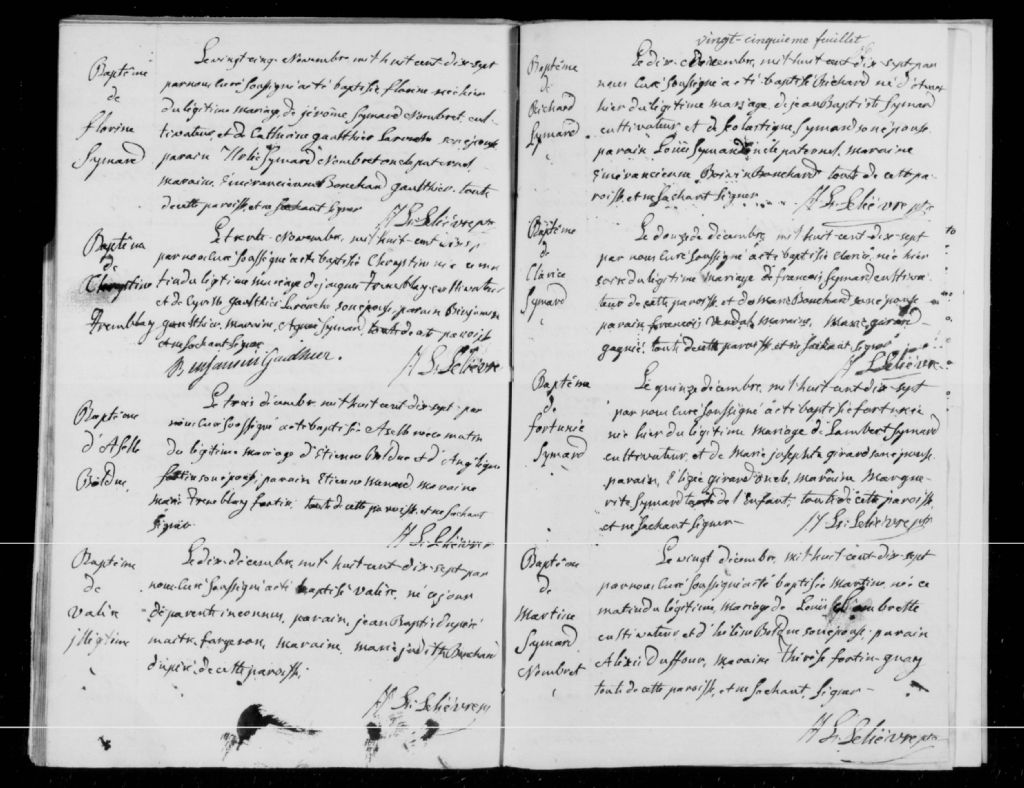 Baptême
de
florine
Symard
Le vingt cinq Novembre mil huit cent dix-sept
par nous Curé soussigné a été baptisée florine née hier
du légitime mariage de jérôme Symard Nombret cul-
tivateur, et de Catherine gauthier Larouche son épouse
parain Symard Nombret oncle paternel,
maraine, Bouchard gauthier. touts
de cette paroisse, et ne sachant signer
Ls. Lelièvre ptre
Baptême
de
Chrystine
Tremblay
Le trente Novembre, mil huit-cent
par nous Curé soussigné a été baptisée Chrystine née ce ma-
tin du légitime mariage de jacques Tremblay cultivateur
et de gauthier Larouche son épouse, parain Benjamin
gauthier, maraine, Agnès Symard, touts de cette paroisse
et ne sachant signer
Benjamin Gauthier.
Ls. Lelièvre
Baptême
d'Aselb
Bolduc
Le trois décembre mil huit cent dix-sept par
nous Curé soussigné a été baptisée Aselb née ce matin
du légitime mariage d'Etienne Bolduc et d'Angélique
fortin son épouse, parain Etienne Menard maraine
marie Tremblay fortin, touts de cette paroisse, et ne sachant
signer
Ls. Lelièvre
Baptême
de
valère
jllégitime
Le dix décembre, mil huit-cent dix-sept par
nous Curé soussigné a été baptisé valère, né ce jour
de parents inconnus, parain, jean Baptiste dupéré
maitre forgeron, maraine, marie judith Bouchard
dupéré de cette paroisse.
Ls. Lelièvre ptre
vingt-cinquieme feuillet
Baptême
de
Richard
Symard
Le dix décembre, mil huit cent dix-sept par
nous Curé soussigné a été baptisé Richard né d'avant
hier du légitime mariage de jean Baptiste Symard
cultivateur et de scolastique Symard son épouse
parain Louis Symard oncle paternel, maraine
Boivin Bouchard touts de cette pa-
roisse, et ne sachant signer
Ls. Lelièvre ptre
Baptême
de
Clarice
Symard
Le douze décembre, mil huit-cent dix-sept
par nous Curé soussigné a été baptisée Clarice, née hier
soir du légitime mariage de françois Symard cultiva-
teur de cette paroisse et de Marie Bouchard son épouse
parain, françois maraine, Marie girard
gagné, touts de cette paroisse et ne sachant signer
Ls. Lelièvre
Baptême
de
fortunée
Symard
Le quinze décembre, mil huit cent dix-sept
par nous Curé soussigné a été baptisée fortunée
née hier du légitime mariage de Lambert Symard
cultivateur, et de Marie josephte girard son épouse
parain, Elizée girard oncle, maraine Margue-
rite Symard tante de l'enfant, touts de cette paroisse
et ne sachant signer
Ls. Lelièvre ptre
Baptême
de
Martine
Symard
Nombret
Le vingt décembre, mil huit-cent dix-sept
par nous Curé soussigné a été baptisée Martine, née ce
matin du légitime, mariage de Louis
cultivateur et d'hélène Bolduc son épouse parain
Alexis Duffour, maraine Thérèse fortin guay
touts de cette paroisse, et ne sachant, signer
Ls. Lelièvre ptre